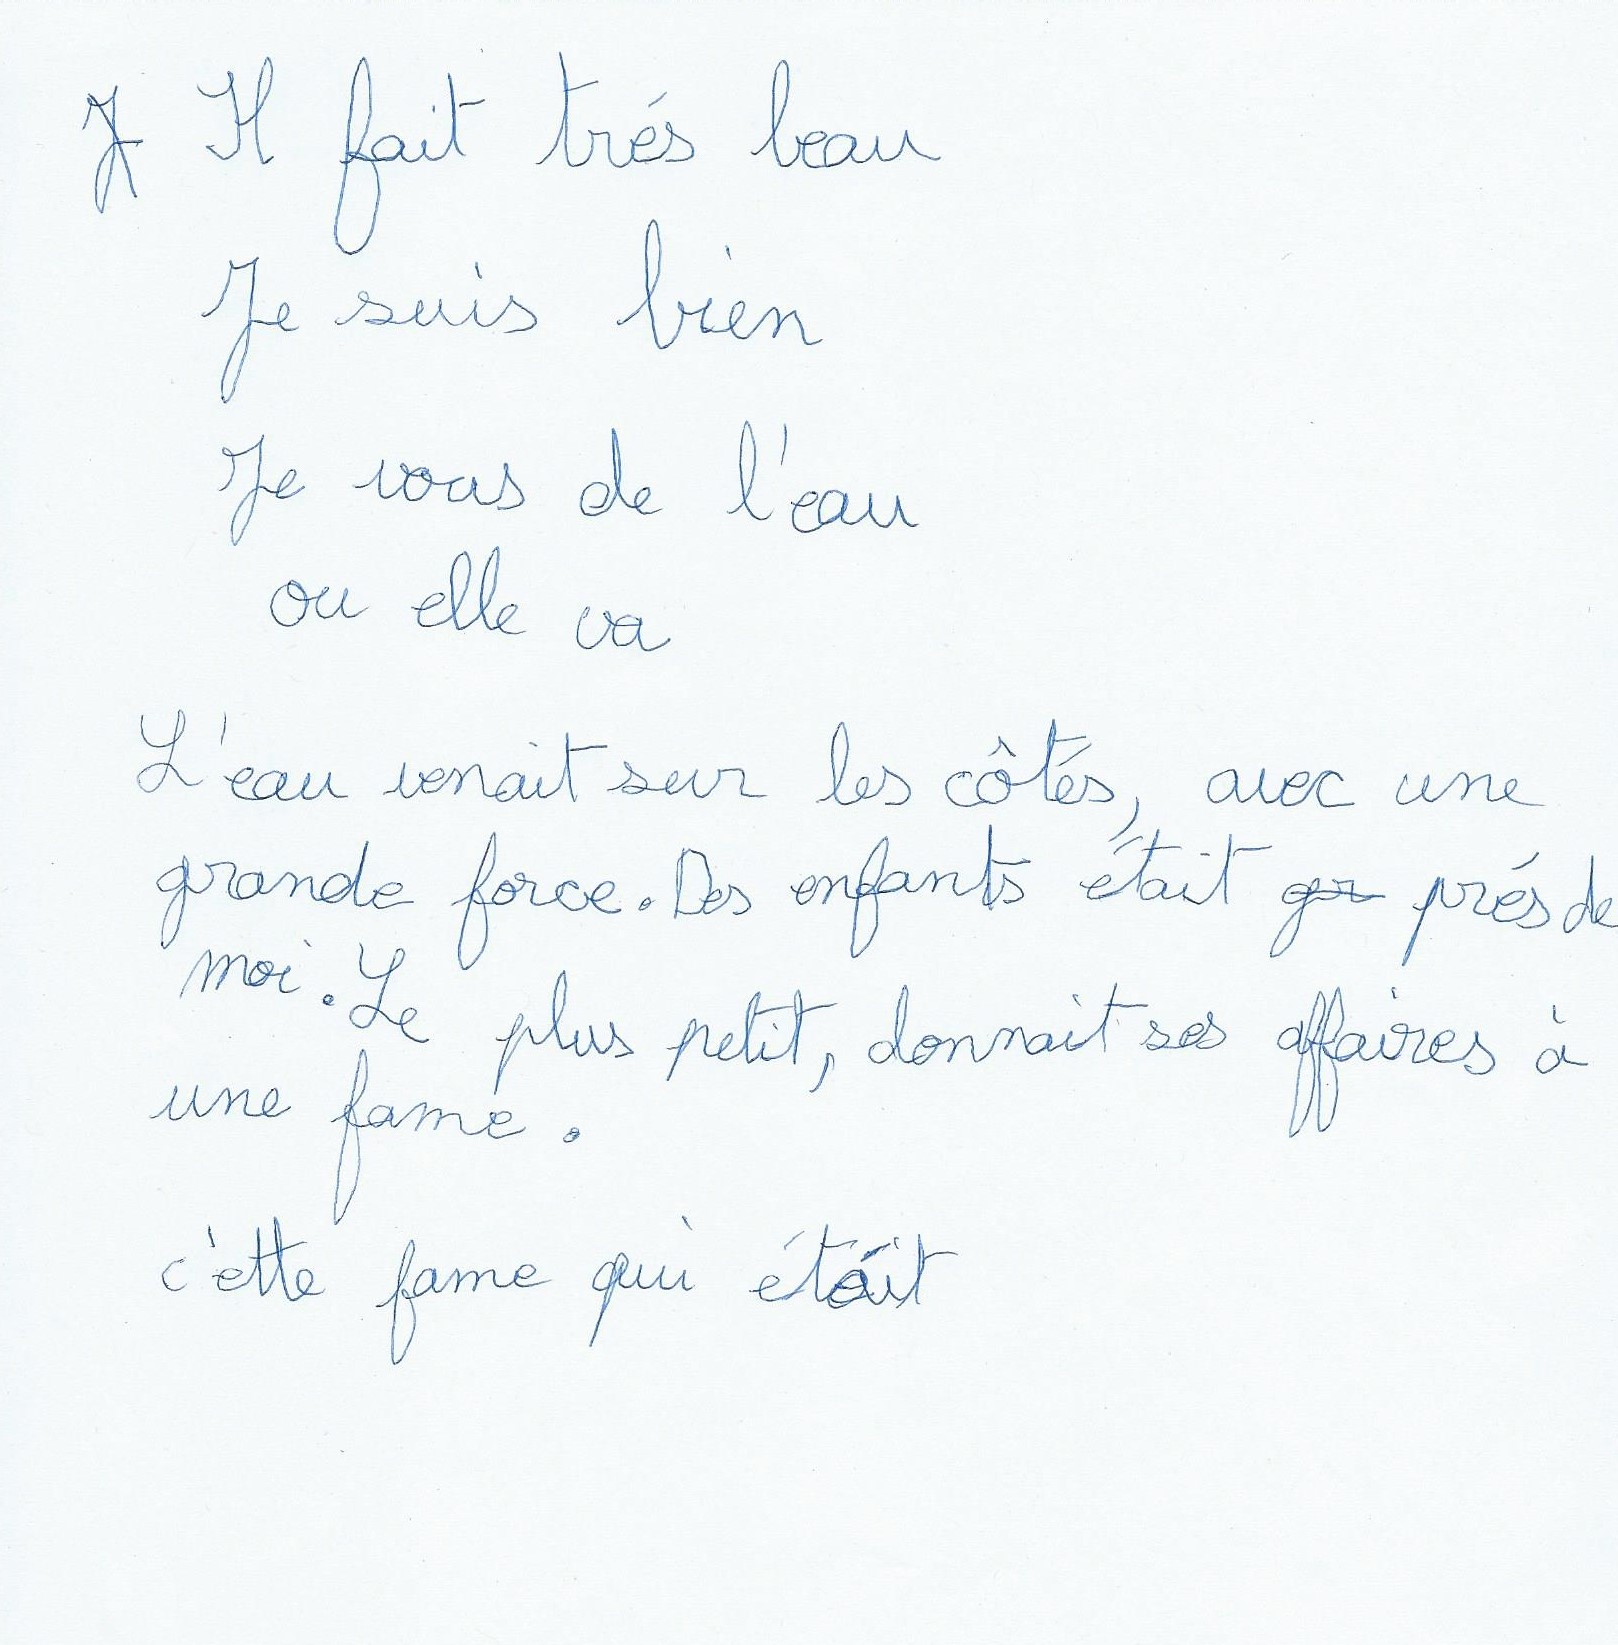 Il fait trés beau
Je suis bien
Je vous de l'eau
ou elle va
L'eau venait sur les côtés, avec une
grande force. Des enfants était gr prés de
moi. Le plus petit, donnait ses affaires à
une fame.
c'ette fame qui était